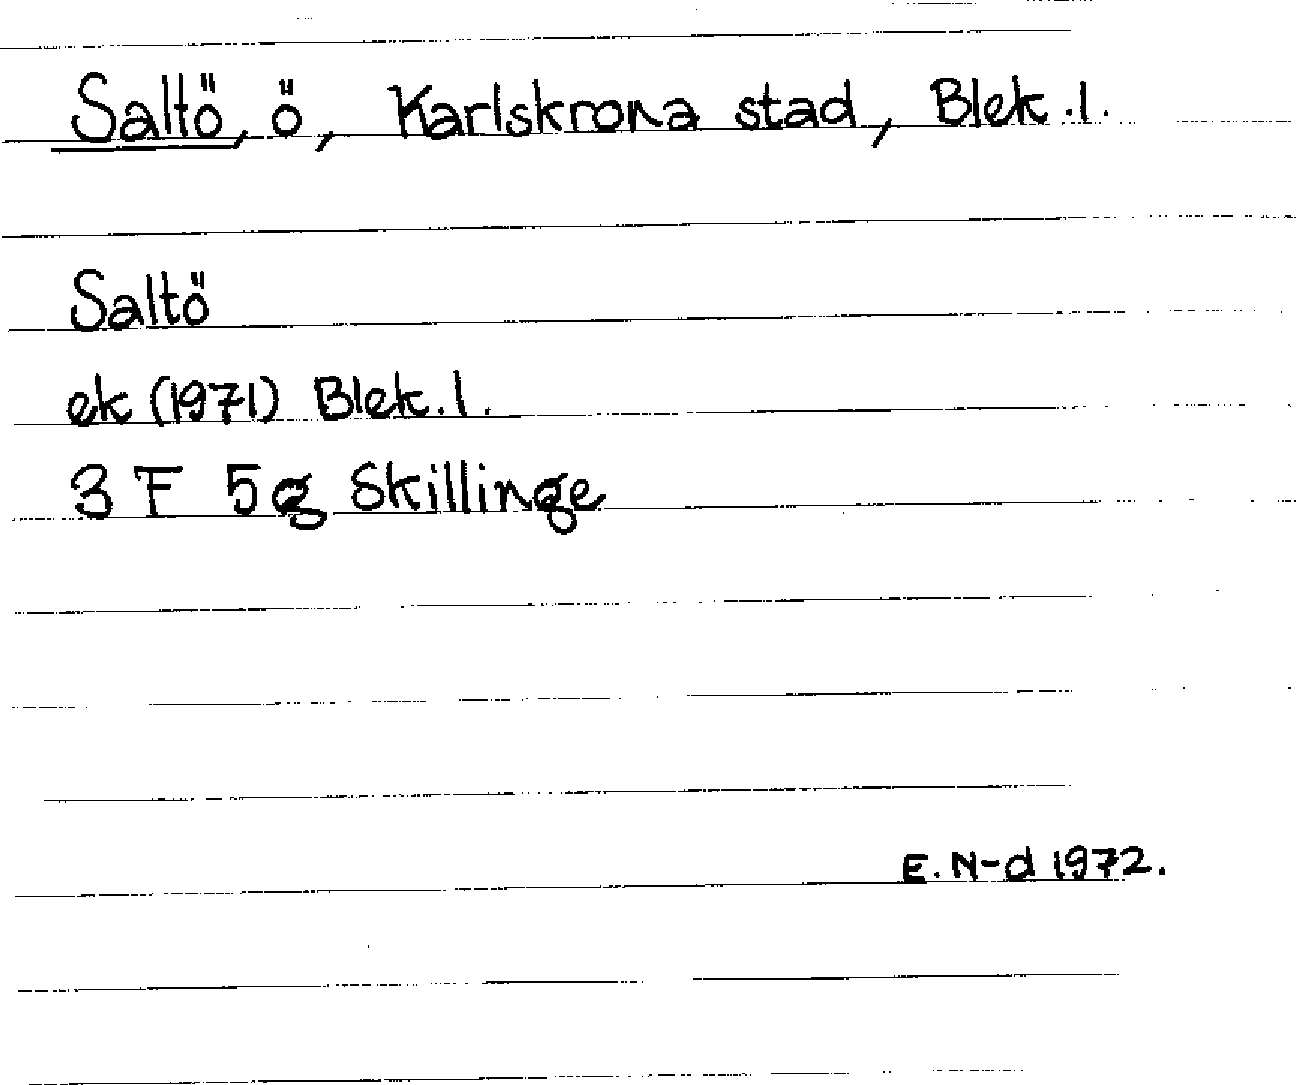 Saltö, ö, Karlskrona stad, Blek.l.
Saltö
ek (1971) Blek.l.
3 F 5g Skillinge
E. N-d 1972.